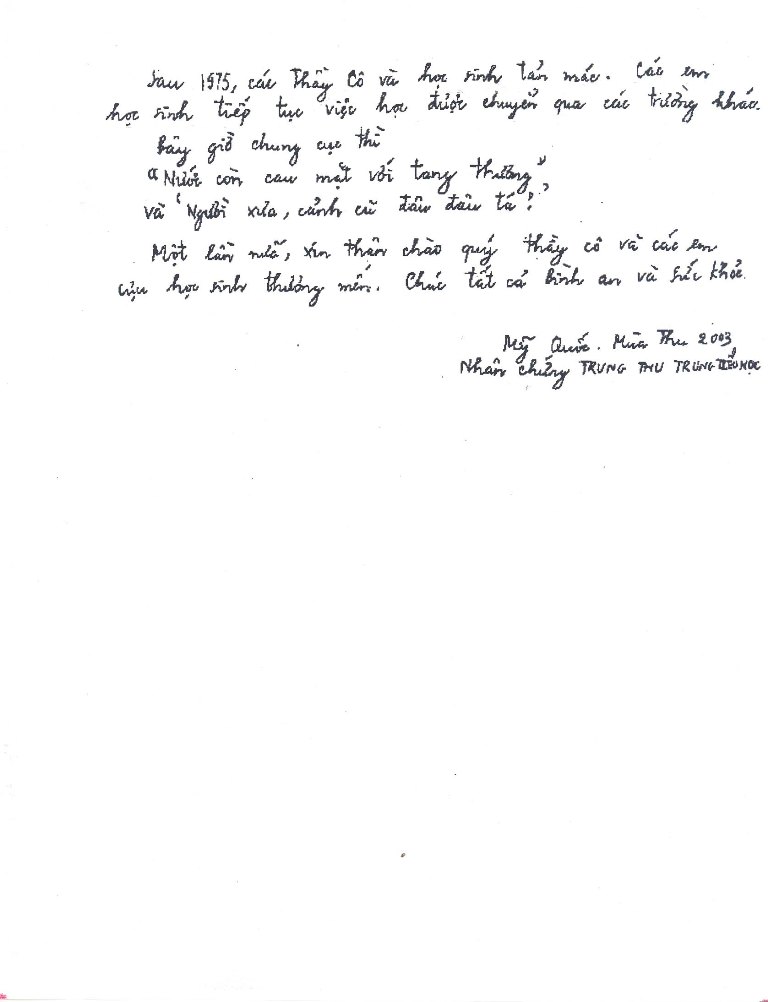 Sau 1975, các Thầy Cô và học sinh tản mác. Các em
học sinh tiếp tục việc học được chuyển qua các trường khác.
Bây giờ chung cục thì
"Nước còn cau mặt với tang thương"
và "Người xưa, cảnh cũ đâu đâu tá?"
Một lần nữa, xin thân chào quý thầy cô và các em
cựu học sinh thương mến. Chúc tất cả bình an và sức khỏe.
Mỹ Quốc. Mùa Thu 2003
Nhân chứng TRUNG THU TRUNG TIỂU HỌC